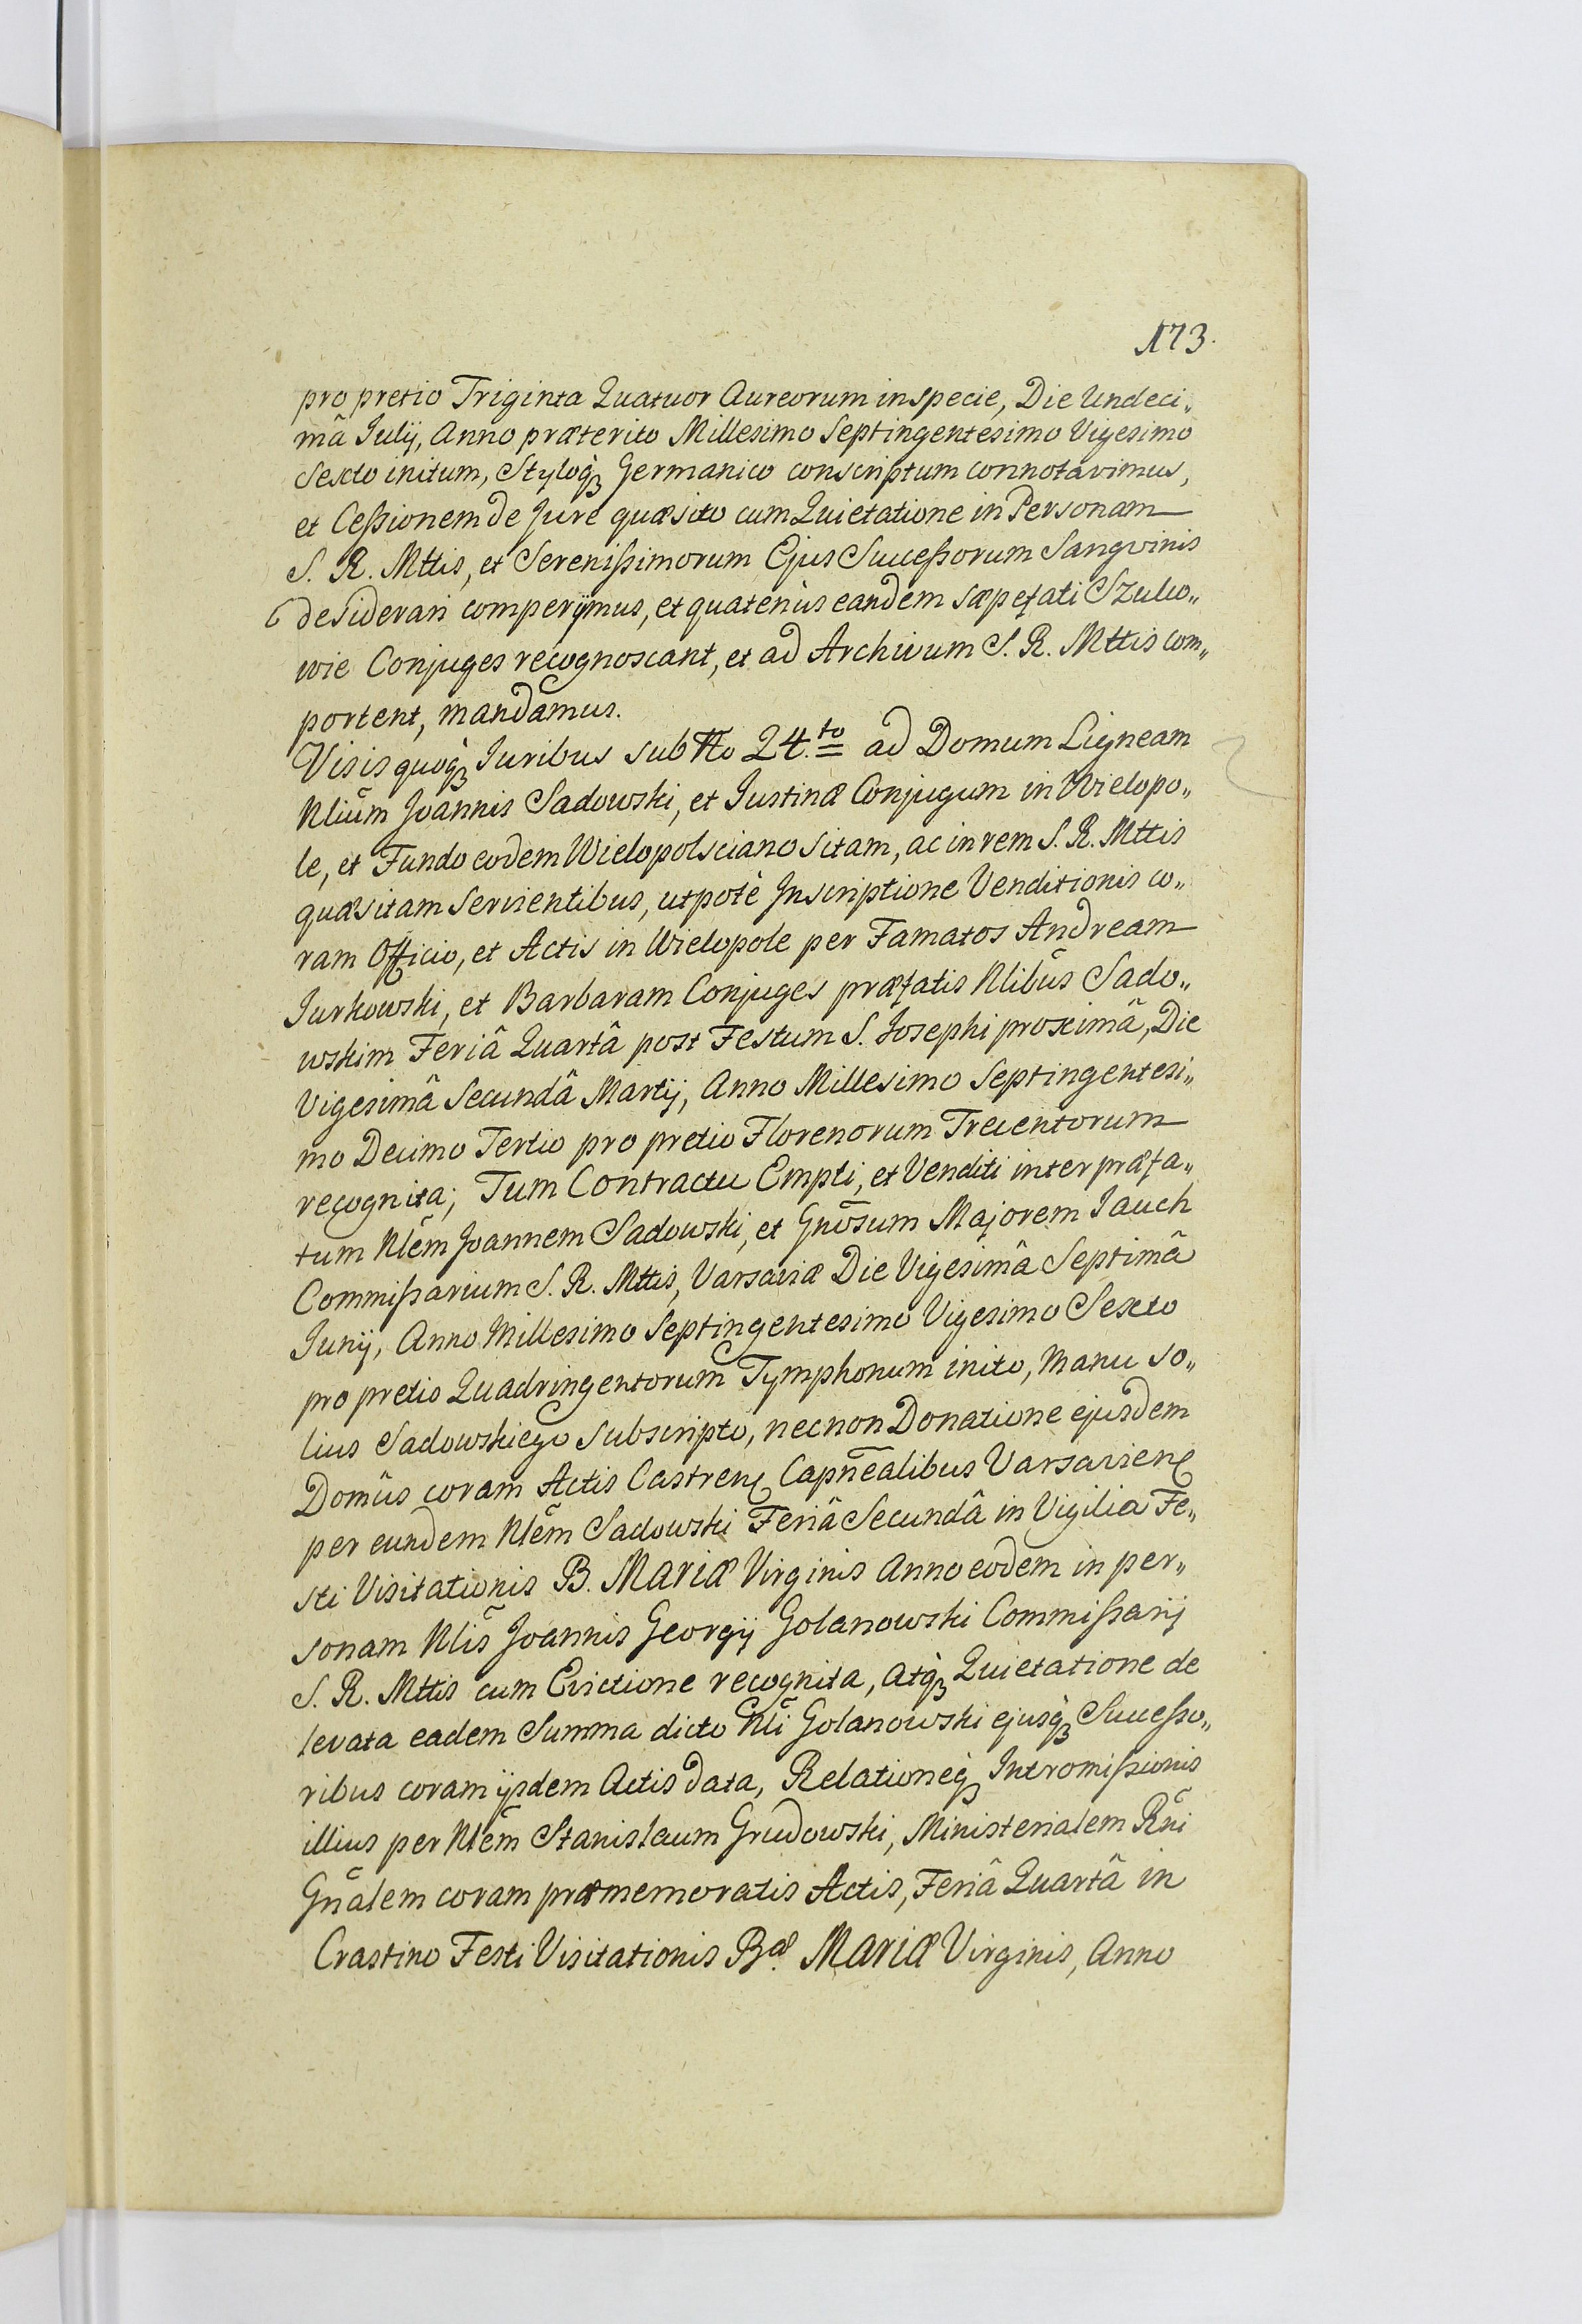 173.
pro pretio Triginta Quatuor Aureorum in specie, Die Undeci„
mâ Julÿ, Anno præterito Millesimo Septingentesimo Vigesimo
Sexto initum, Styloq̀ꝫ Germanico conscriptum connotavimus,
et Ceßionem de Jure quæsito cum Quietatione in Personam
S. R. Mttis, et Serenißimorum Ejus Succeßorum Sangvinis
desiderari comperÿmus, et quatenùs eandem sæpefati Szulco„
wie Conjuges recognoscant, et ad Archivum S. R. Mttis com„
portent, mandamus.
Visis quoq̀ꝫ Juribus sub No 24.to ad Domum Ligneam
Nlium̄ Joannis Sadowski, et Justinæ Conjugum in Wielopo„
le, et Fundo eodem Wielopolsciano sitam, ac in rem S. R. Mttis
quæsitam servientibus, utpotè Inscriptione Venditionis co„
ram Officio, et Actis in Wielopole per Famatos Andream
Jurkowski, et Barbaram Conjuges præfatis Nlibūs Sado„
wskim Feriâ Quartâ post Festum S. Josephi proximâ, Die
Vigesimâ Secundâ Martÿ, Anno Millesimo Septingentesi„
mo Decimo Tertio pro pretio Florenorum Trecentorum
recognita; Tum Contractu Empti, et Venditi inter præfa„
tum Nlēm Joannem Sadowski, et Gnōsum Majorem Jauch
Commißarium S. R. Mttis, Varsaviæ Die Vigesimâ Septimâ
Junÿ, Anno Millesimo Septingentesimo Vigesimo Sexto
pro pretio Quadringentorum Tymphonum inito, Manu so„
lius Sadowskiego subscripto, necnon Donatione ejusdem
Domûs coram Actis Castren Capnēalibus Varsavien
per eundem Nlēm Sadowski Feriâ Secundâ in Vigilia Fe„
sti Visitationis B. Mariæ Virginis Anno eodem in per„
sonam Nlis̄ Joannis Georgÿ Golanowski Commißarÿ
S. R. Mttis cum Evictione recognita, atq̀ꝫ Quietatione de
levata eadem Summa dicto Nlī Golanowski ejusq̀ꝫ Succeßo„
ribus coram ÿsdem Actis data, Relationeq̀ꝫ Intromißionis
illius per Nlēm Stanislaum Grudowski, Ministerialem Rn̄i
Gn̄alem coram præmemoratis Actis, Feriâ Quartâ in
Crastino Festi Visitationis Bæ. Mariæ Virginis, Anno